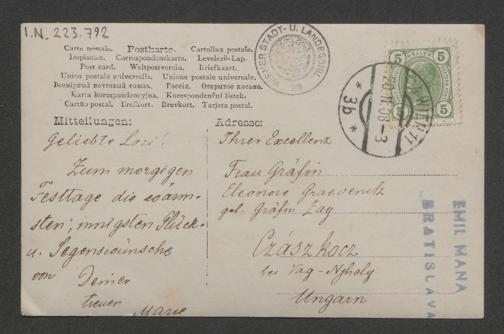 I.N. 223.792
Carte postale. Postkarte. Cartolina postale.
Dopisnice. Correspondenzkarte. Levelező-Lap.
Post card. Weltpostverein. Briefkaart.
Union postale universelle. Unione postale universale.
Всемірный почтовый союзъ. Россія. Открытое письмо.
Karta korespondencyjna. Korespondenční lístek.
Cartão postal. Brefkort. Brevkort. Tarjeta postal.
WIENER STADT- U. LANDESBIBL.
5 5
5 5
WIEN 11
20.II.08-3
* 3b *
Mitteilungen:
Adresse:
Geliebte Lori!
Zum morgigen
Festtage die wärm-
sten, innigsten Glück-
u. Segenswünsche
von Deiner
treuen
Marie
Ihrer Excellenz
Frau Gräfin
Eleonore Graevenitz
geb. Gräfin Zay
Czászkocz
bei Vag-Ughely
Ungarn
EMIL MANA
BRATISLAVA